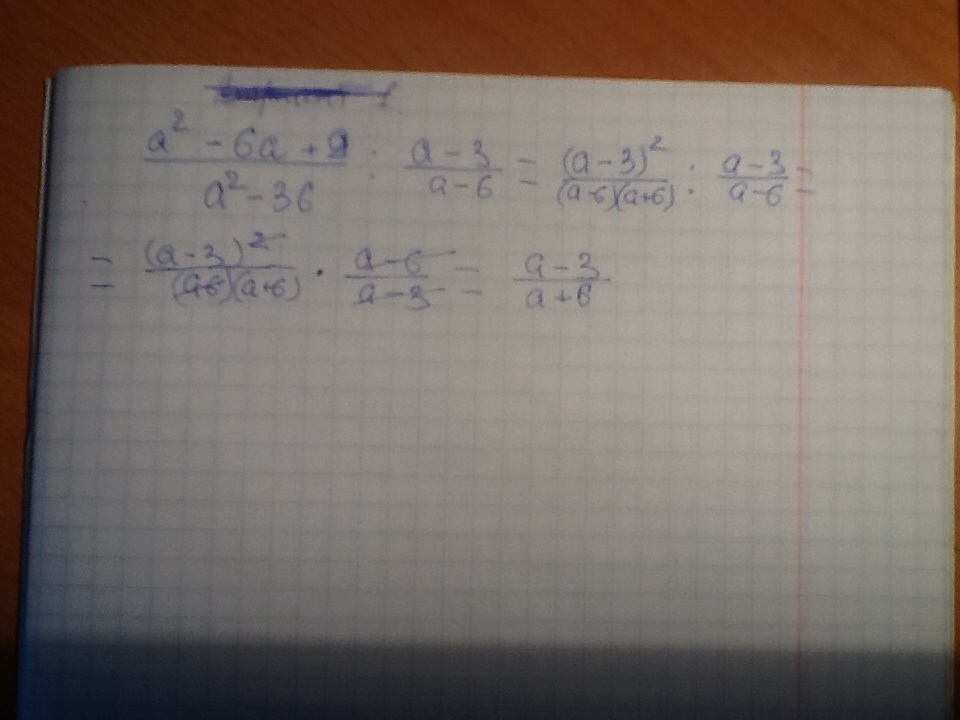 a² - 6a + 9 / a² - 36 : a - 3 / a - 6 = (a - 3)² / (a-6)(a+6) : a - 3 / a - 6 =
= (a - 3)² / (a-6)(a+6) · a - 6 / a - 3 = a - 3 / a + 6